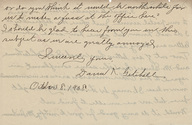 or do you think it would be worth while for
me to make a fuss at the office here
I should be glad to hear from you on this
subject as in are greatly annoyed,
Sincerely yours
David N. Getchell
October 8. 1908